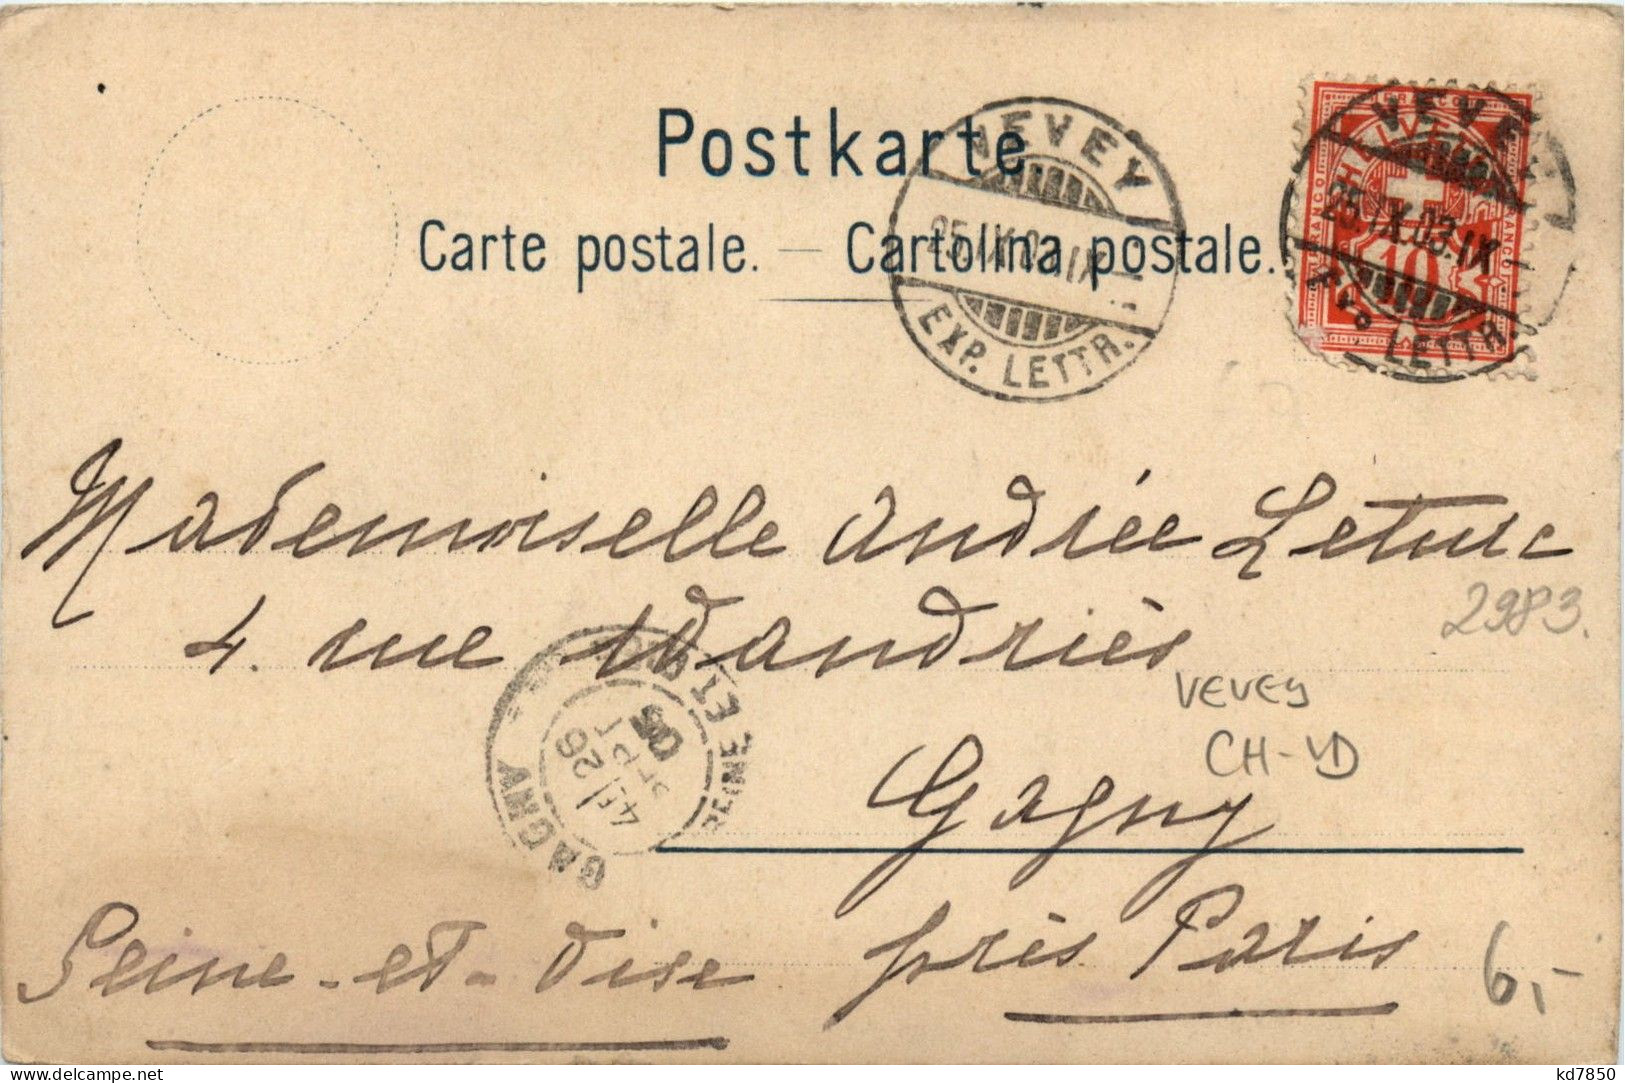 Postkarte.
Carte postale. — Cartolina postale.
VEVEY
25.IX.03.IX
EXP. LETTR.
FRANCO
HELVETIA
FRANCO
FRANCO
10
VEVEY
25.IX.03.IX
EXP. LETTR.
Mademoiselle Andrée
4. rue
2983.
GAGNY
SEINE ET OISE
4E
26
SEPT
03
VEVEY
CH-VD
Gagny
Seine-et-Oise près Paris
6,-
www.delcampe.net
kd7850